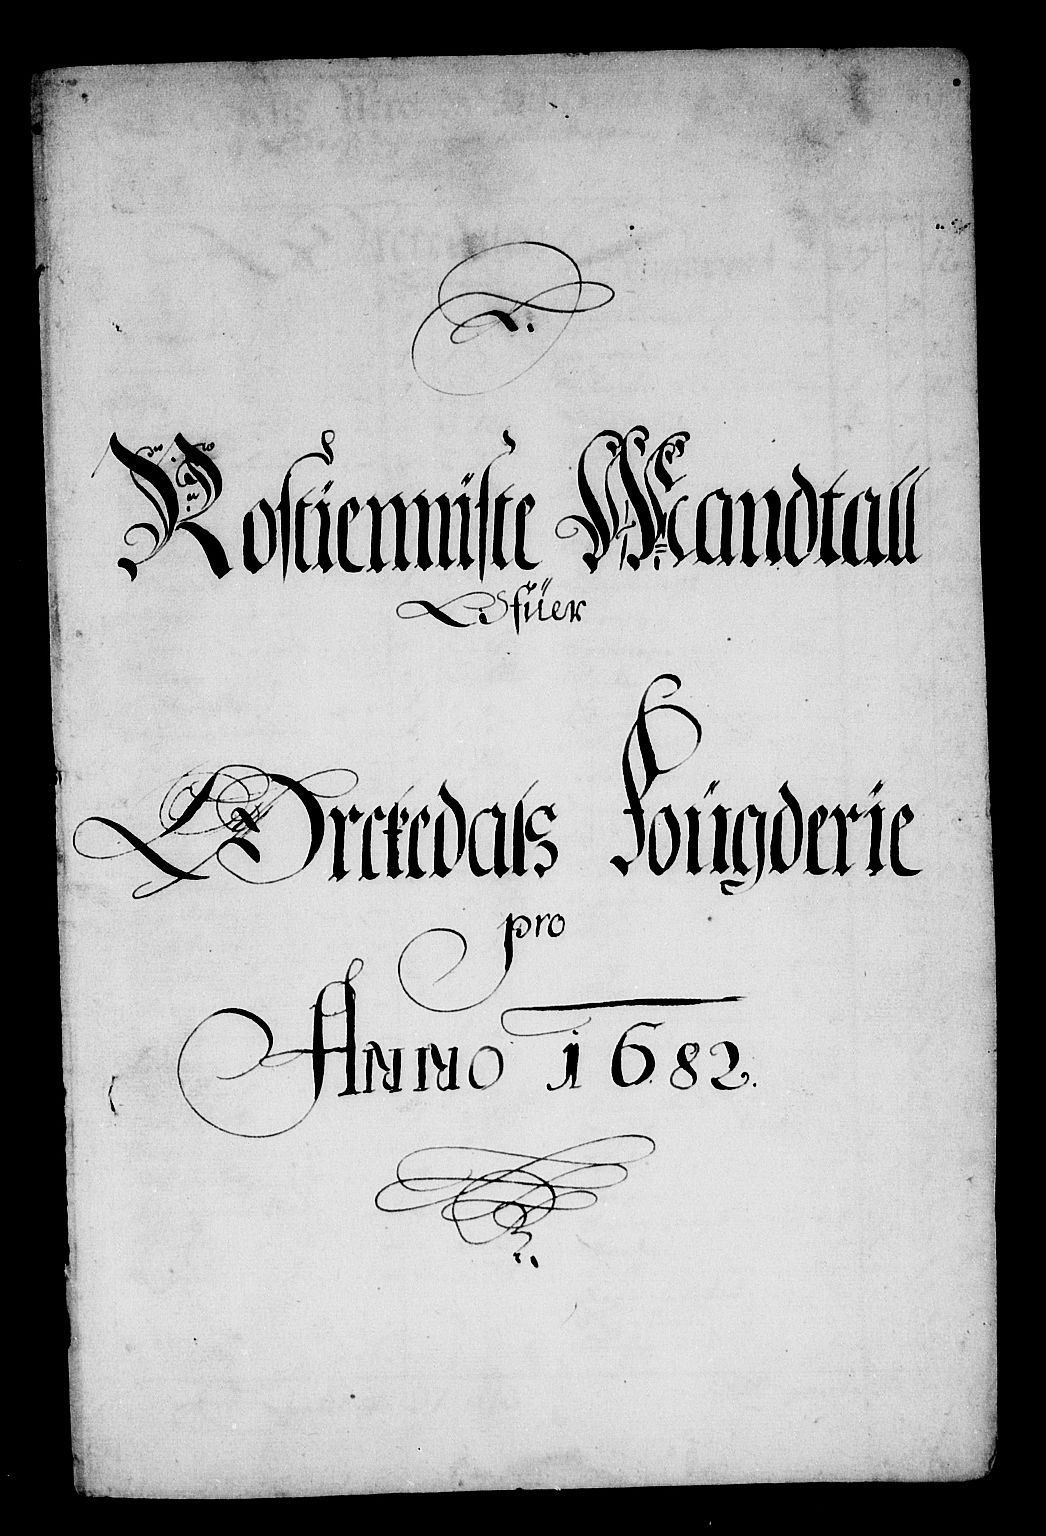 Rostienniste Mandtall
Ofüer
Orckedals Foügderie
pro
Anno 1682.